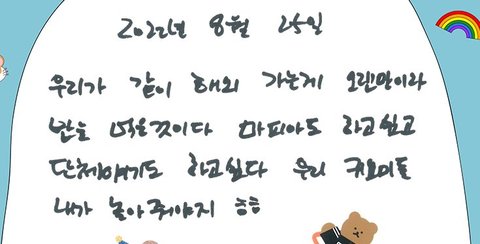 2022년 8월 25일
우리가 같이 해외 가는게 오랜만이라
반은 먹은것이다 마피아도 라고싶고
단체얘기도 라고싶다 우리 귀요미들
내가 놀아줘야지 흠흠